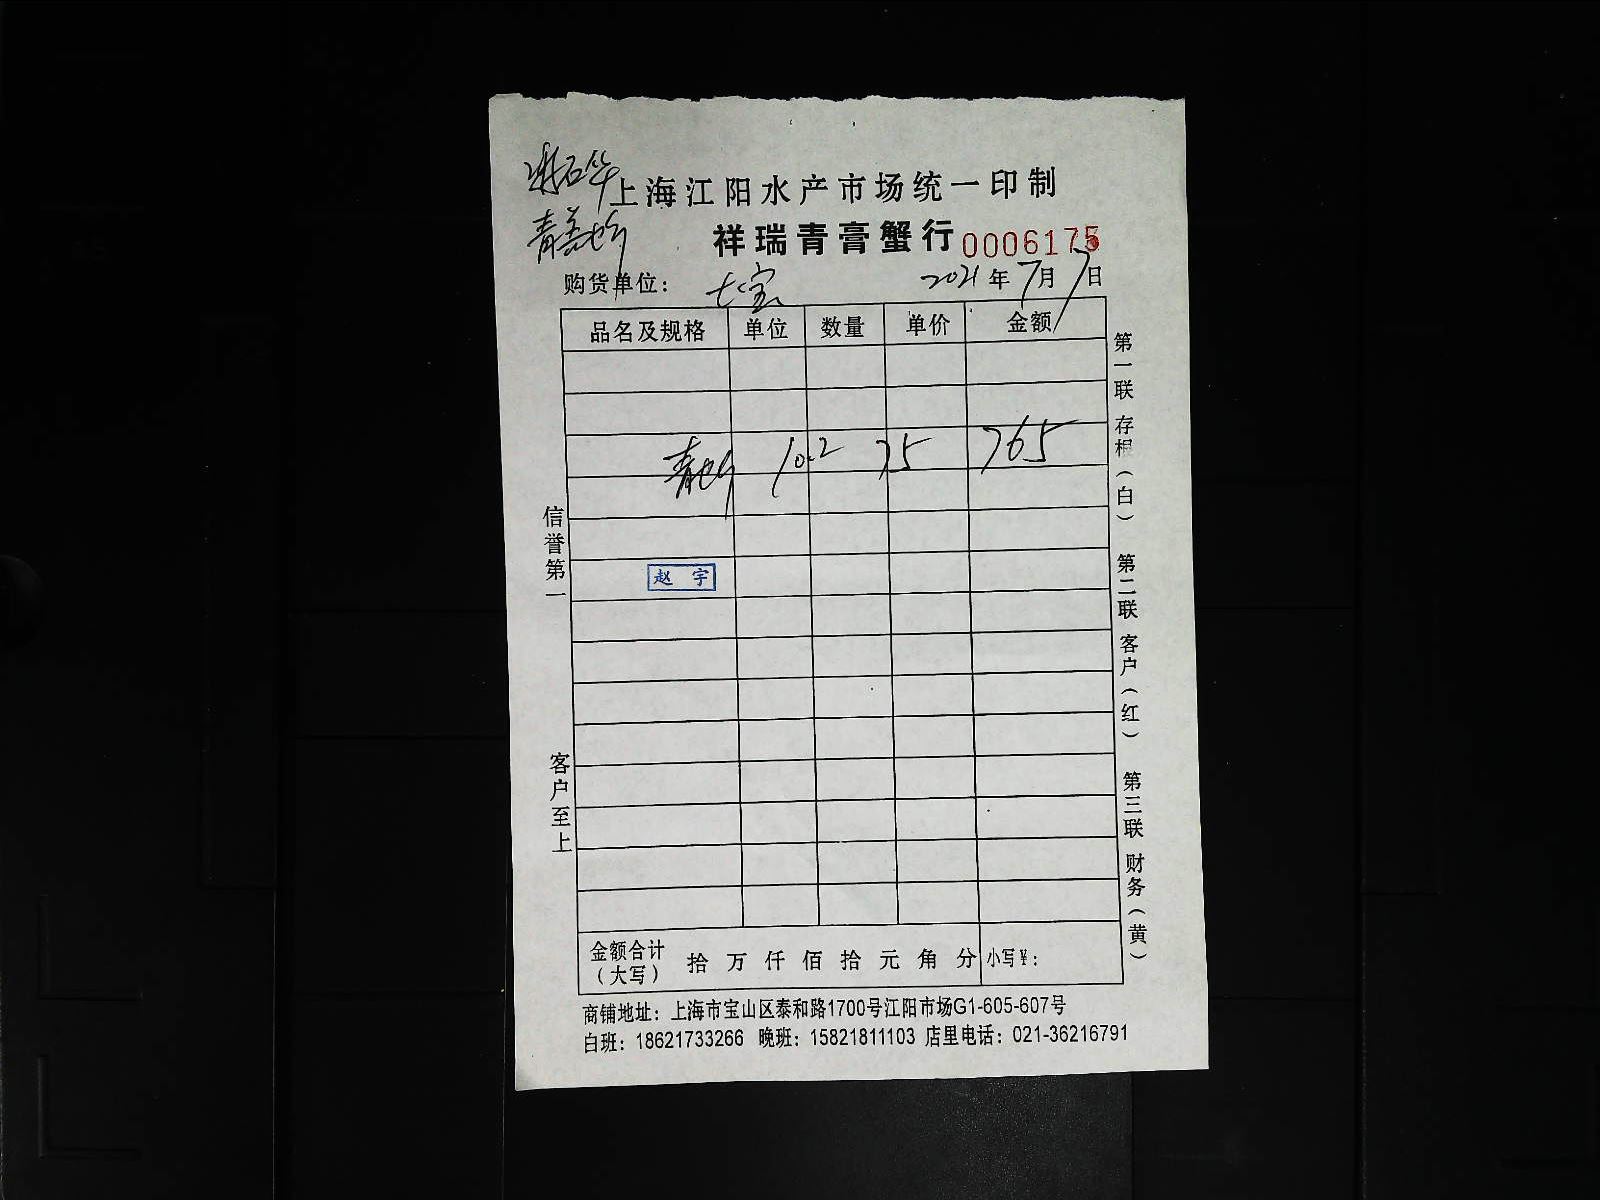 上海江阳水产市场统一印制
祥瑞青膏蟹行 0006175
购货单位： 七宝 2021年7月7日
品名及规格 单位 数量 单价 金额
10.2 75 765
赵 宇
信誉第一
客户至上
第一联 存根（白）
第二联 客户（红）
第三联 财务（黄）
金额合计（大写） 拾 万 仟 佰 拾 元 角 分 小写¥：
商铺地址：上海市宝山区泰和路1700号江阳市场G1-605-607号
白班：18621733266 晚班：15821811103 店里电话：021-36216791